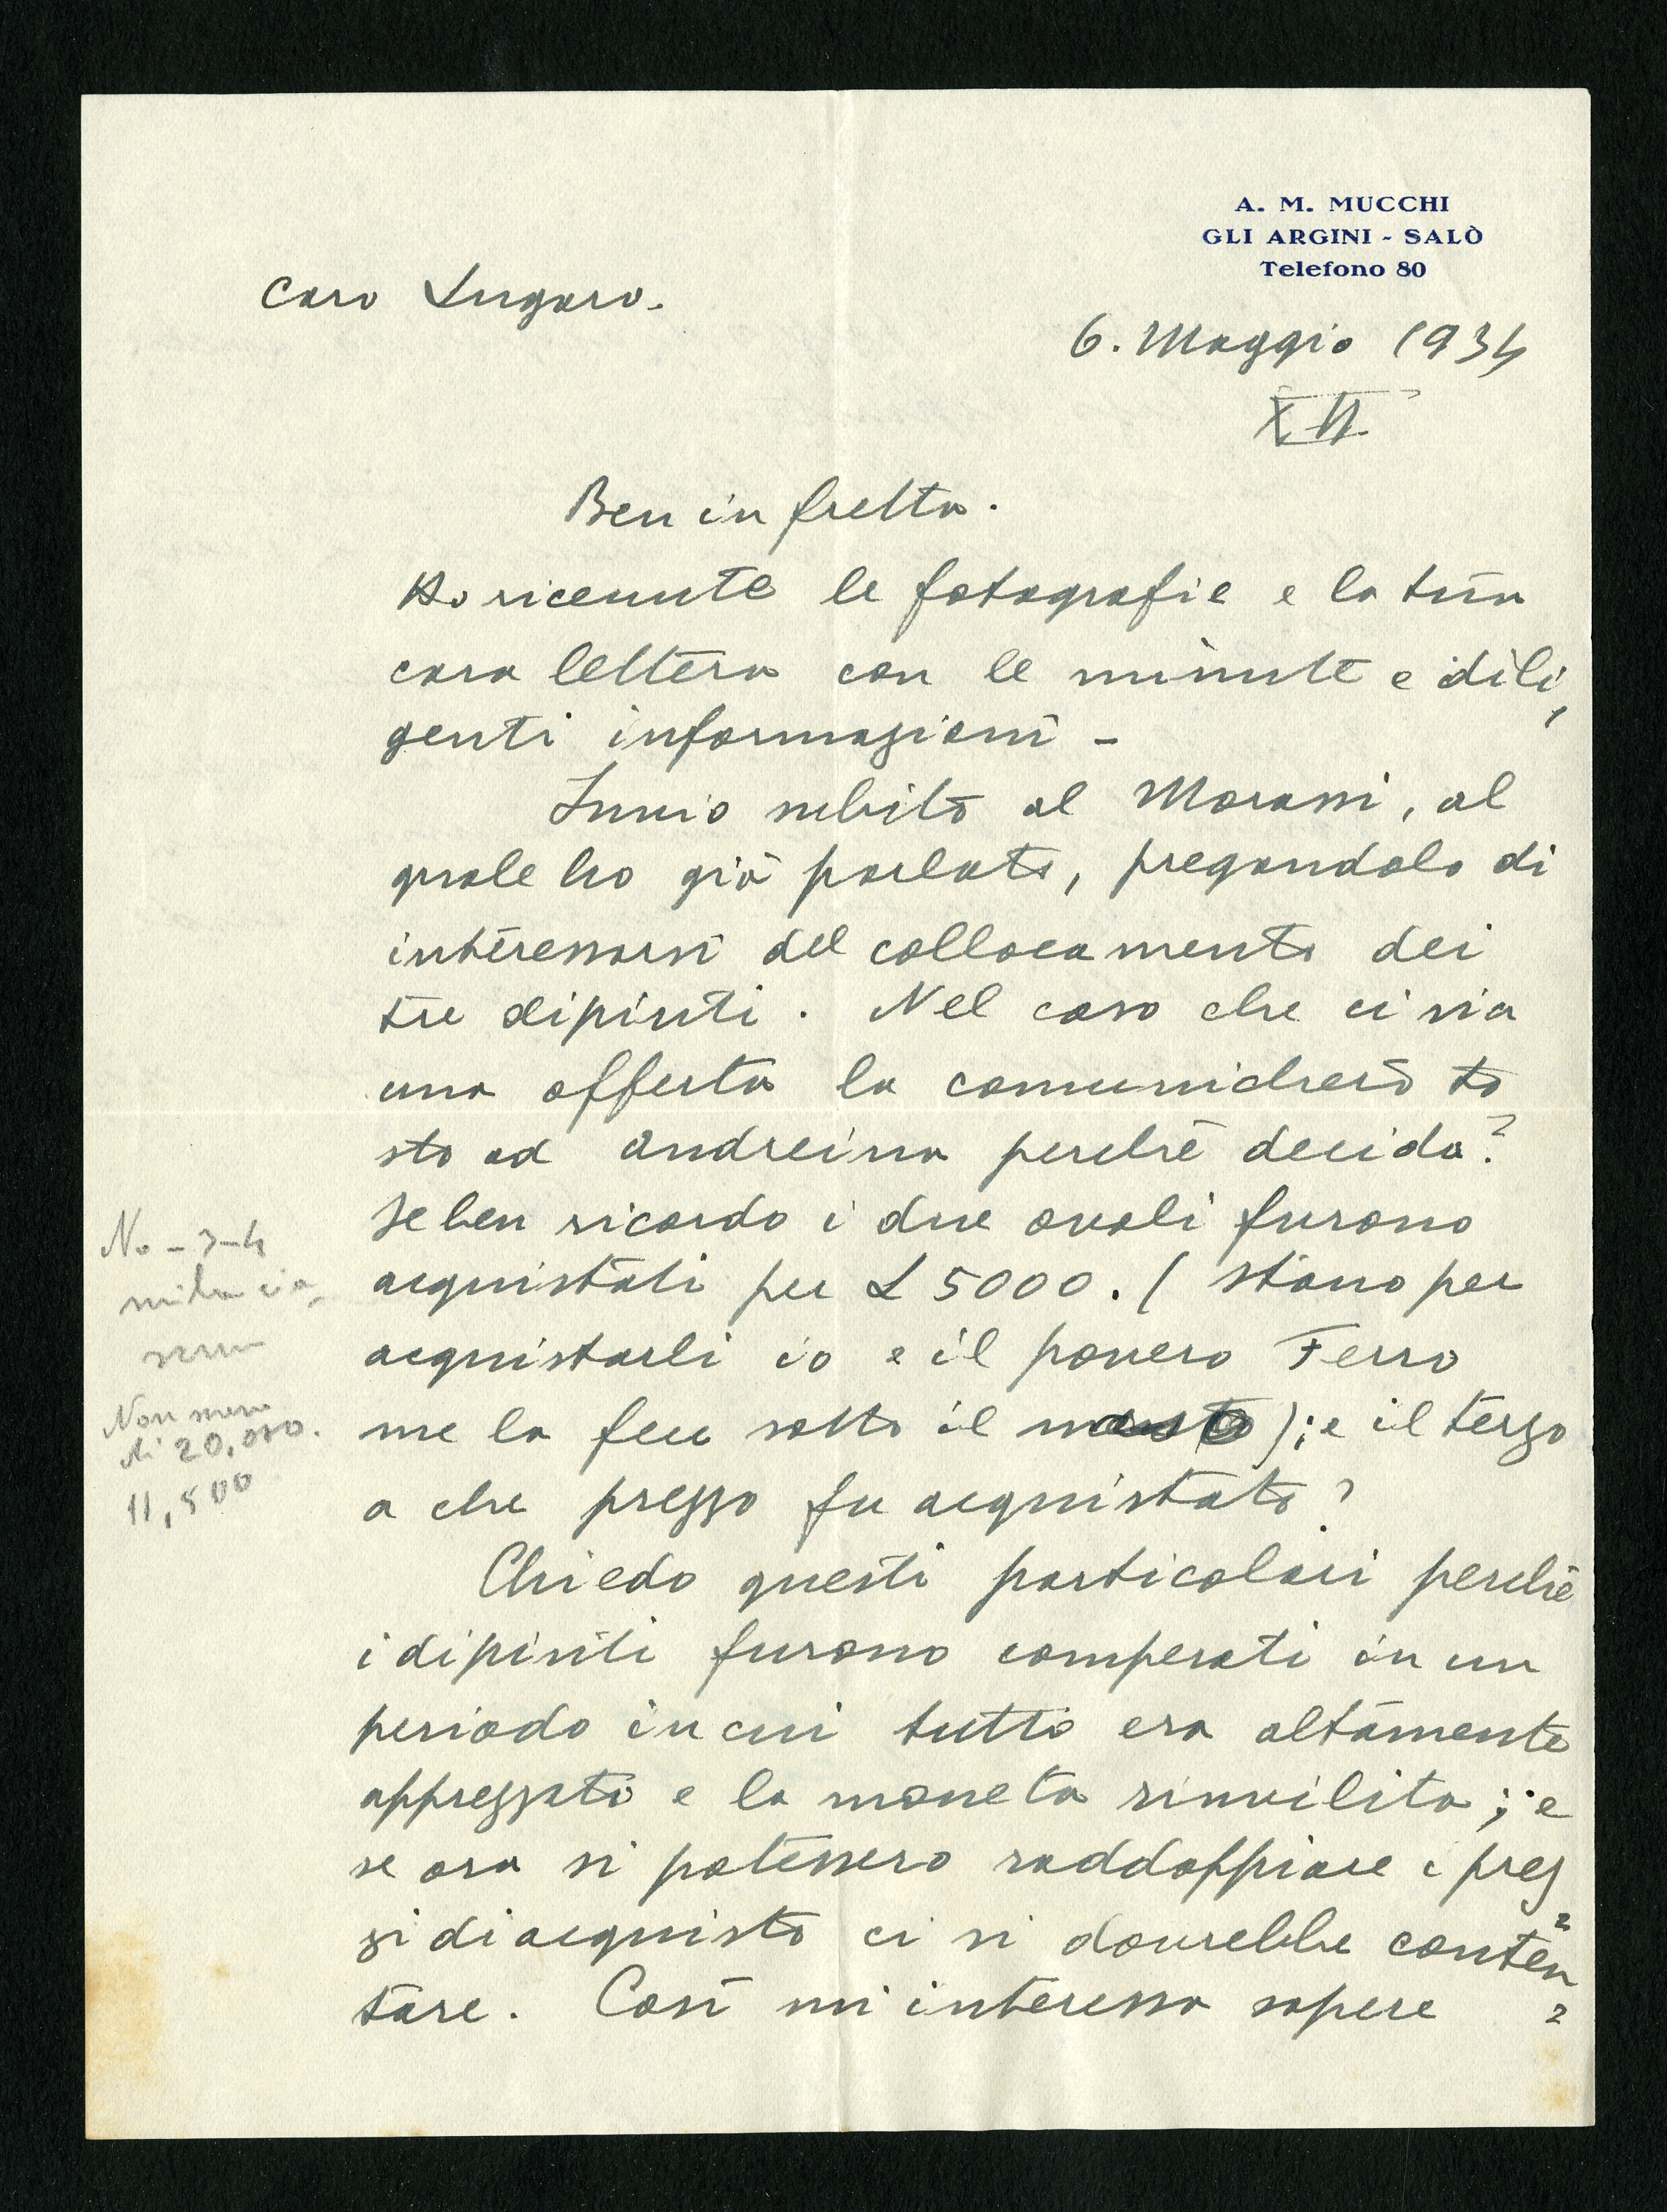 A. M. MUCCHI
GLI ARGINI - SALÒ
Telefono 80
Caro Lugaro.
6. Maggio 1934
XII
Ben in fretta.
Ho ricevute le fotografie e la tua
cara lettera con le minute e dili
genti informazioni -
Invio subito al Morassi, al
quale ho già parlato, pregandolo di
interessarsi del collocamento dei
tre dipinti. Nel caso che ci sia
una offerta la comunicherò to
sto ad Andreina perchè decida?
Se ben ricordo i due ovali furono
acquistati per £ 5000. ( stavo per
acquistarli io e il povero Ferro
me la fece sotto il naso ); e il terzo
a che prezzo fu acquistato?
Chiedo questi particolari perchè
i dipinti furono comperati in un
periodo in cui tutto era altamente
apprezzato e la moneta rinvilita; e
se ora si potessero raddoppiare i prez
zi di acquisto ci si dovrebbe conten
tare. Così mi interessa sapere
No - 3-4
mila cia
scuno
Non meno
di 20,000.
11,500